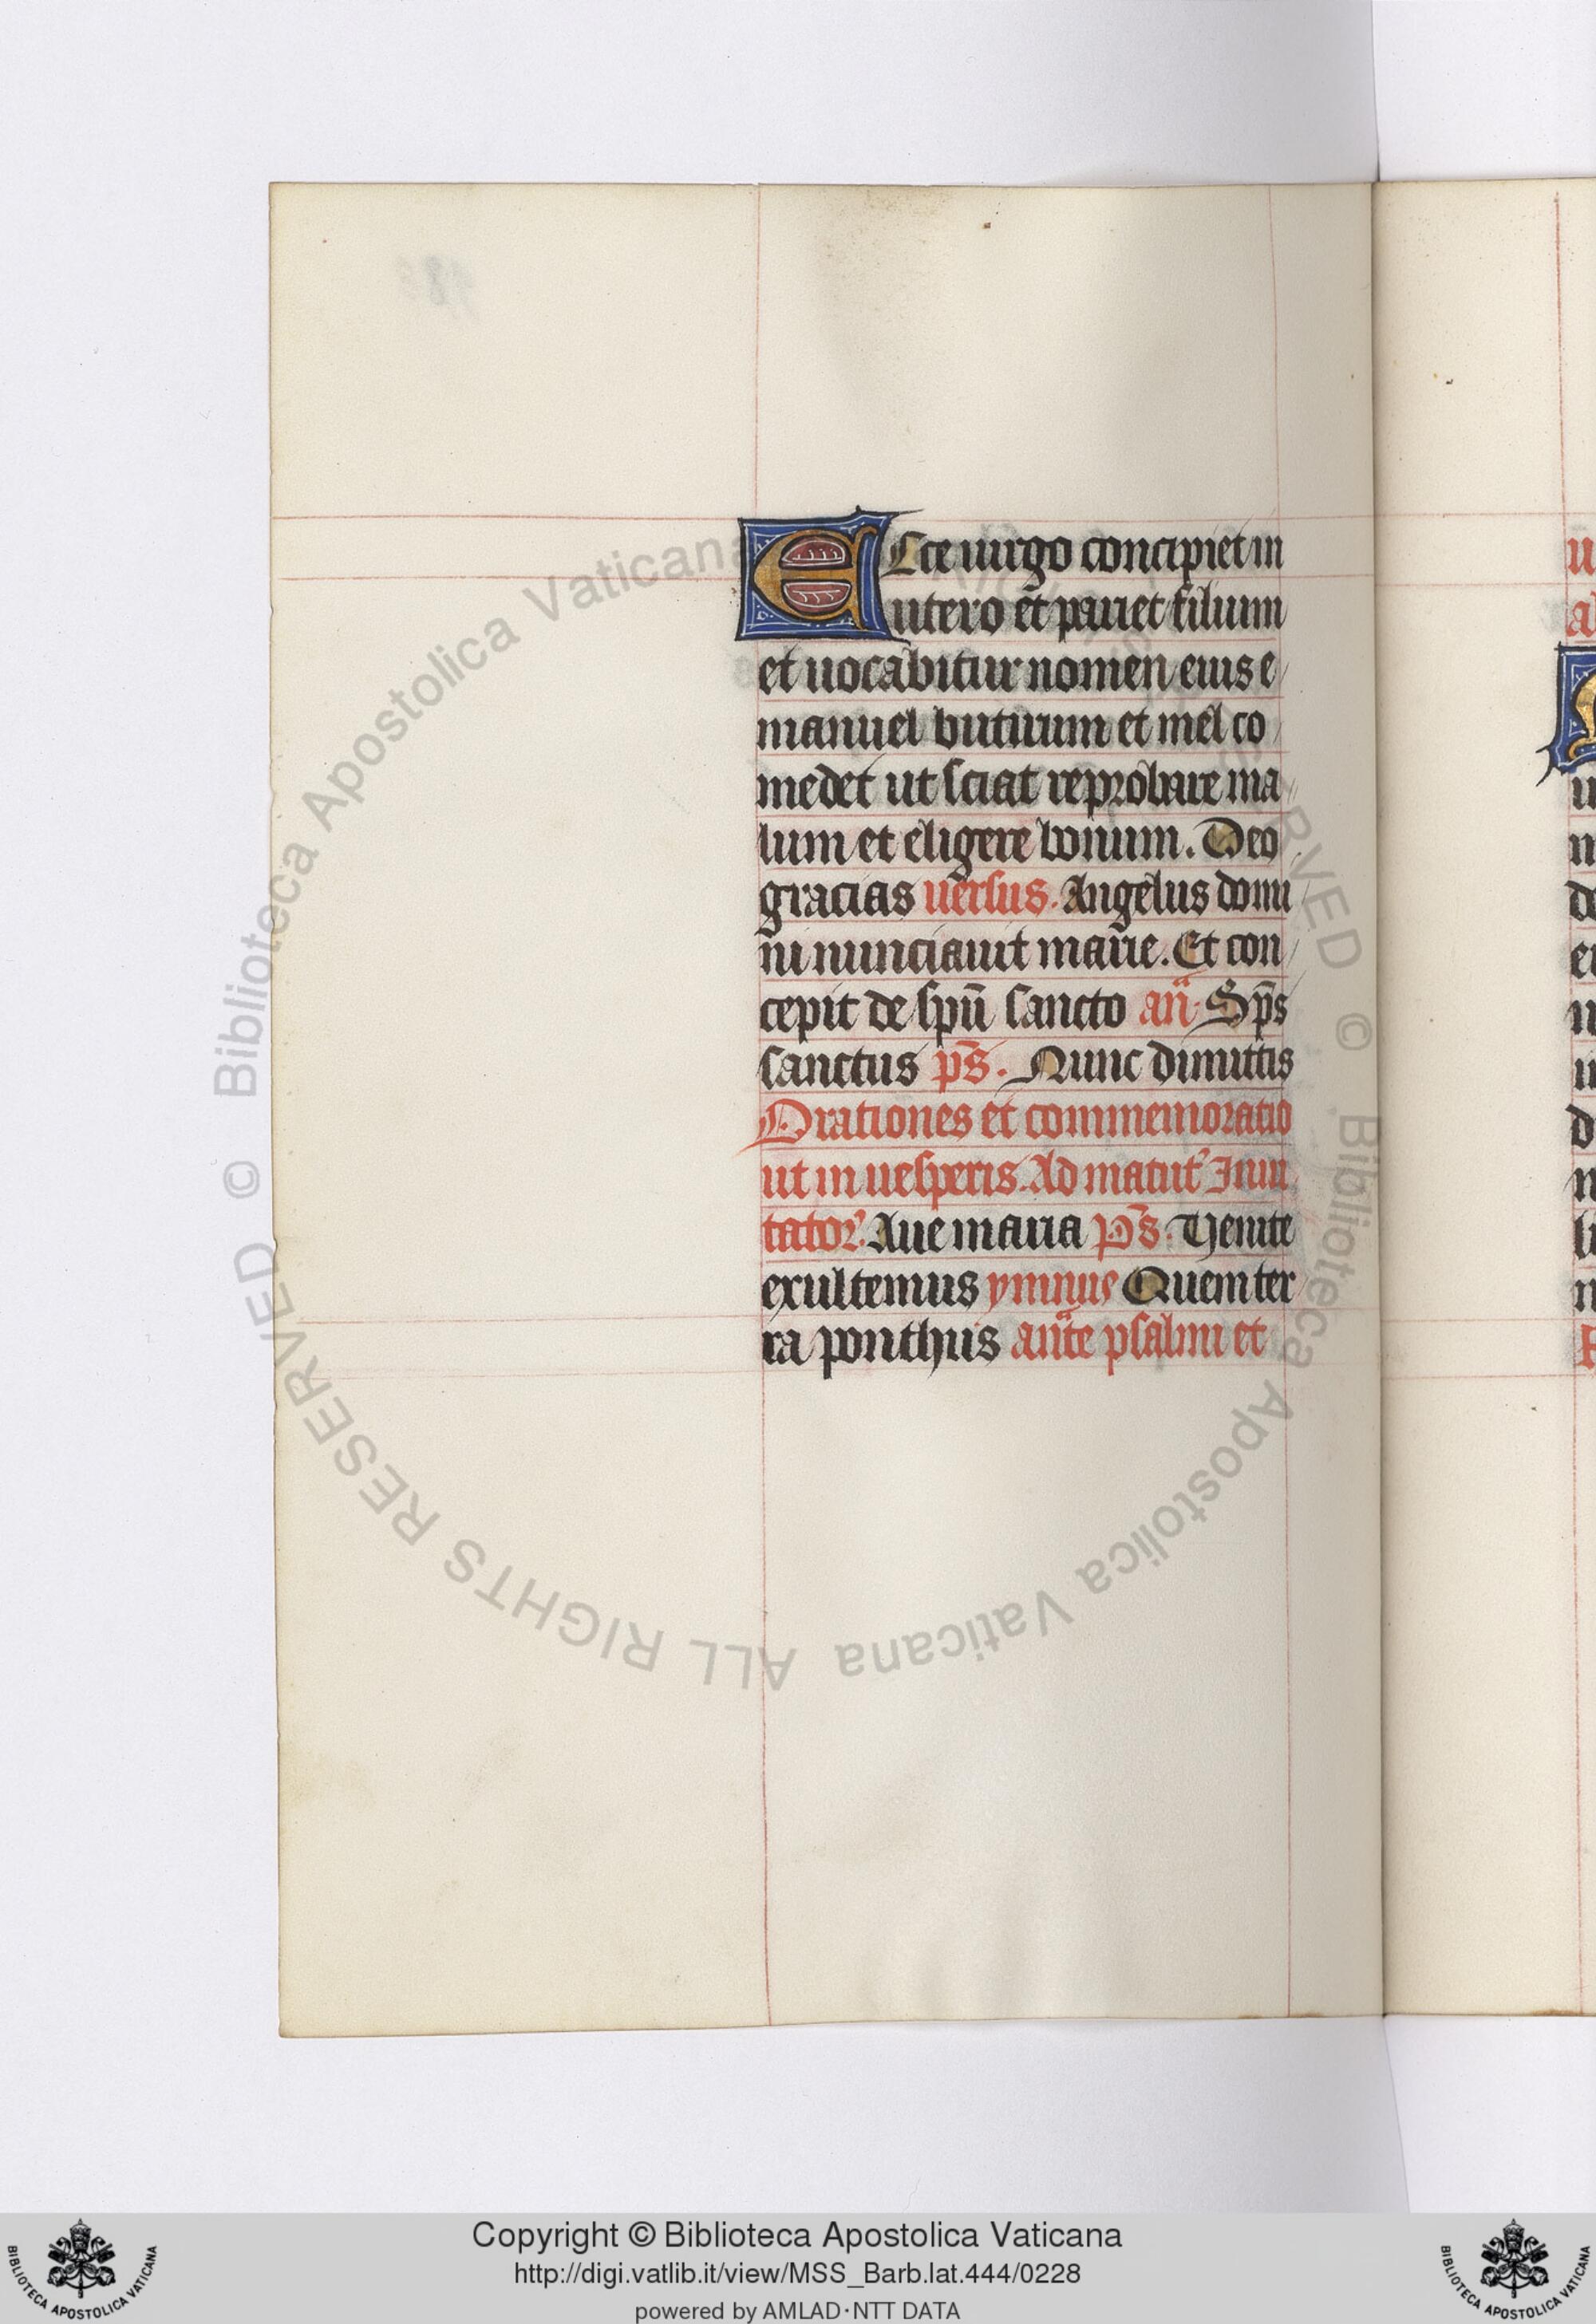 Ecce uirgo concipiet in
utero et pariet filium
et uocabitur nomen eius e
manuel buturum et mel co
medet ut sciat reprobare ma
lum et eligere bonum. Deo
gracias uersus. Angelus domi
ni nunciauit marie. Et con
cepit de spū sancto an̄. Sp̄s
sanctus p̄s. Nunc dimittis
Orationes et commemoratio
ut in uesperis. Ad matut' Inui
tator'. Aue maria P̄s. Venite
exultemus ymnus Quem ter
ra ponthus an̄te psalmi et
Copyright © Biblioteca Apostolica Vaticana
http://digi.vatlib.it/view/MSS_Barb.lat.444/0228
powered by AMLAD·NTT DATA
BIBLIOTECA APOSTOLICA VATICANA
BIBLIOTECA APOSTOLICA VATICANA
© Biblioteca Apostolica Vaticana
© Biblioteca Apostolica Vaticana ALL RIGHTS RESERVED